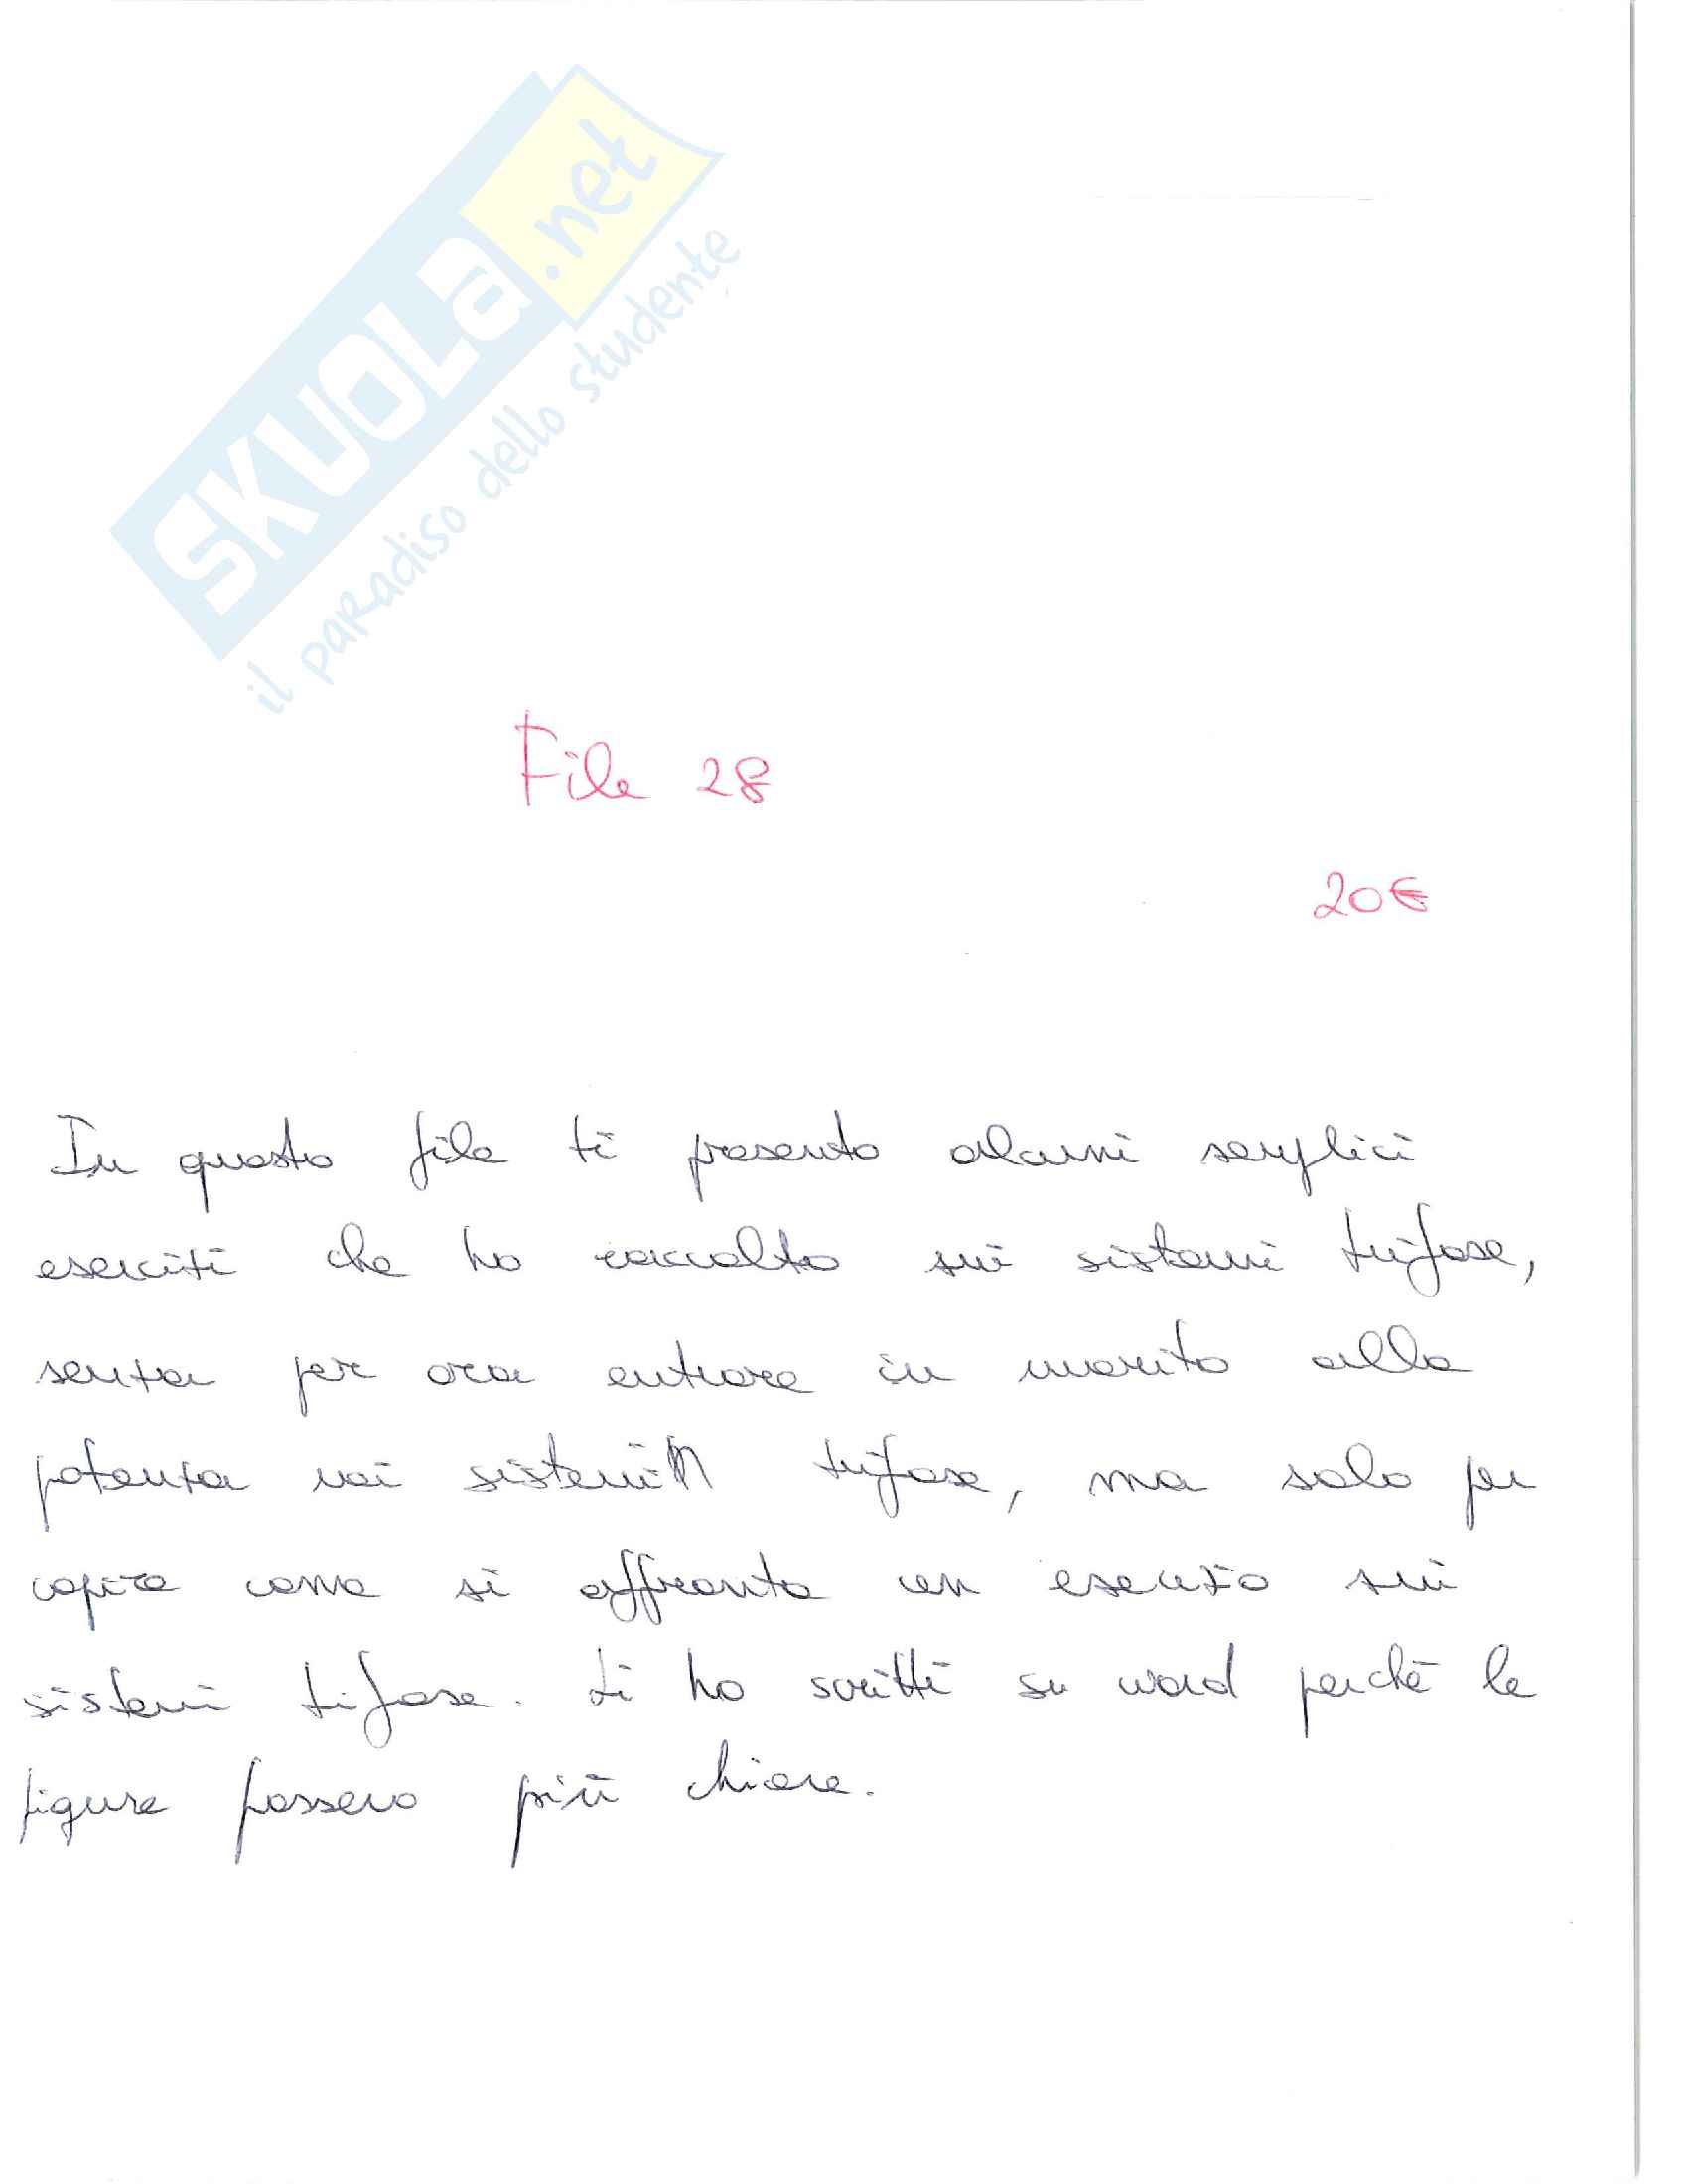 SKUOLa.net
il paradiso dello studente
File 28
20€
In questo file ti presento alcuni semplici
esercizi che ho raccolto sui sistemi trifase,
senza per ora entrare in merito alla
potenza nei sistemi trifase, ma solo per
capire come si affronta un esercizio sui
sistemi trifase. Li ho scritti su word perché le
figure fossero più chiare.